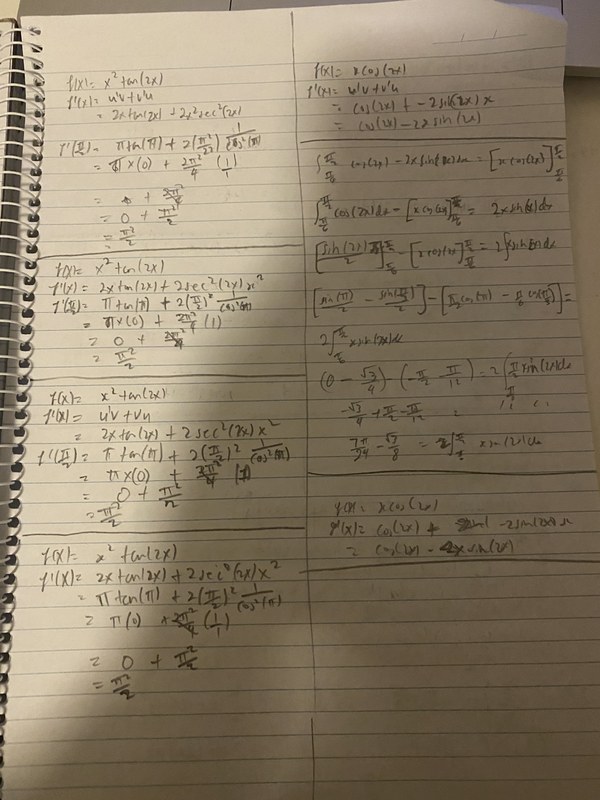 f(x) = x² tan(2x)
f'(x) = u'v + v'u
= 2x tan(2x) + 2x² sec²(2x)
f'(π/2) = π tan(π) + 2(π²/2²) 1/cos²(π)
= π×(0) + 2π²/4 (1/1)
= 0 + 2π²/4
= 0 + π²/2
= π²/2
f(x) = x² tan(2x)
f'(x) = 2x tan(2x) + 2 sec²(2x) x²
f'(π/2) = π tan(π) + 2(π/2)² 1/cos²(π)
= π×(0) + 2π²/4 (1)
= 0 + 2π²/4
= π²/2
f(x) = x² tan(2x)
f'(x) = u'v + v'u
= 2x tan(2x) + 2 sec²(2x) x²
f'(π/2) = π tan(π) + 2(π/2)² 1/cos²(π)
= π×(0) + 2π²/4 (1)
= 0 + π²/2
= π²/2
f(x) = x² tan(2x)
f'(x) = 2x tan(2x) + 2 sec²(2x) x²
= π tan(π) + 2(π/2)² 1/cos²(π)
= π(0) + 2π²/4 (1/1)
= 0 + π²/2
= π²/2
f(x) = x cos(2x)
f'(x) = u'v + v'u
= cos(2x) + -2 sin(2x) x
= cos(2x) - 2x sin(2x)
cos(2x) - 2x sin(2x) dx = [x cos(2x)]
∫ cos(2x) dx - [x cos(2x)] = 2x sin(2x) dx
[sin(2x)/2] - [x cos(2x)] = 2∫
[sin(π)/2 - ] - [π/2 cos(π) - π/6 cos(π/3)] =
2∫ x sin(2x) dx
(0 - √3/4) - (-π/2 - π/12) = 2
-√3/4 + π/2 - π/12
7π/24 - √3/8 = x sin(2x) dx
f(x) = x cos(2x)
f'(x) = cos(2x) + -2 sin(2x) x
= cos(2x) - 2x sin(2x)